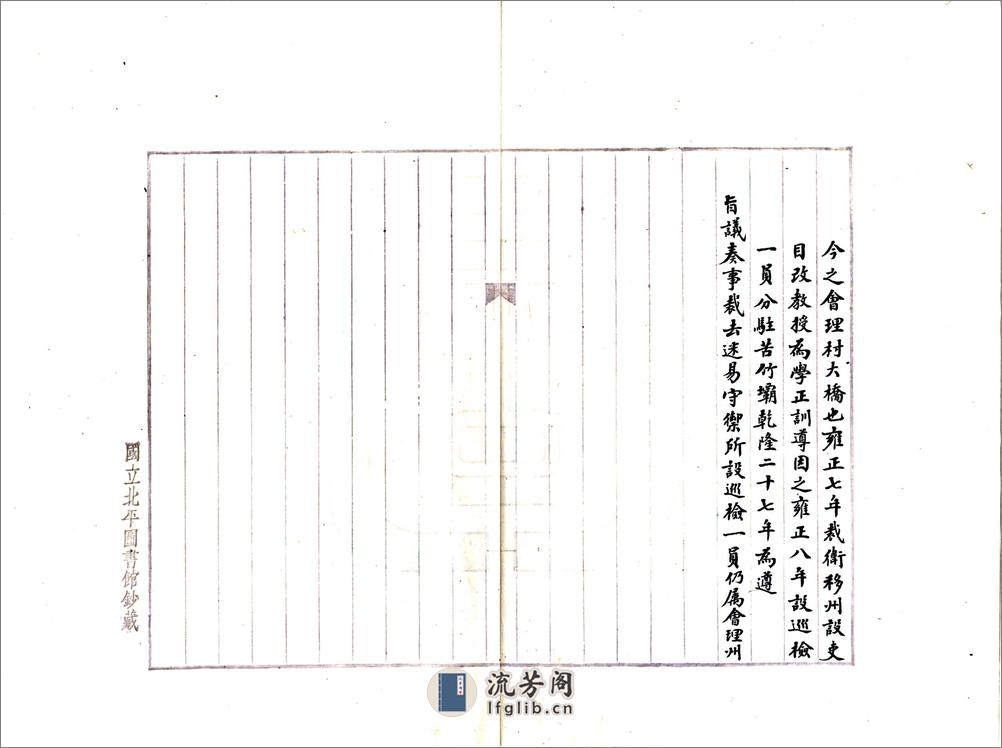 今之會理村大橋也雍正七年裁衛移州設吏
目改教授為學正訓導因之雍正八年設巡檢
一員分駐苦竹壩乾隆二十七年為遵
旨議奏事裁去迷易守禦所設巡檢一員仍属會理州
國立北平圖書館鈔藏
流芳阁
lfglib.cn